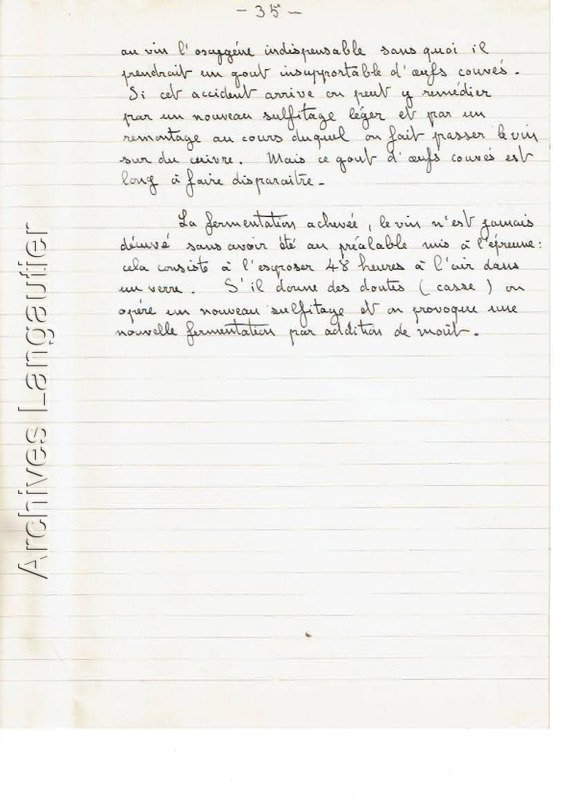 - 35 -
au vin l'oxygéne indispensable sans quoi il
prendrait un gout insupportable d'œufs couvés.
Si cet accident arrive on peut y remédier
par un nouveau sulfitage léger et par un
remontage au cours duquel on fait passer le vin
sur du cuivre. Mais ce gout d'œufs couvés est
long à faire disparaitre.
La fermentation achevée, le vin n'est jamais
décuvé sans avoir été au préalable mis à l'épreuve:
cela consiste à l'exposer 48 heures à l'air dans
un verre. S'il donne des doutes (casse) on
opére un nouveau sulfitage et on provoque une
nouvelle fermentation par addition de moût.
Archives Langautier